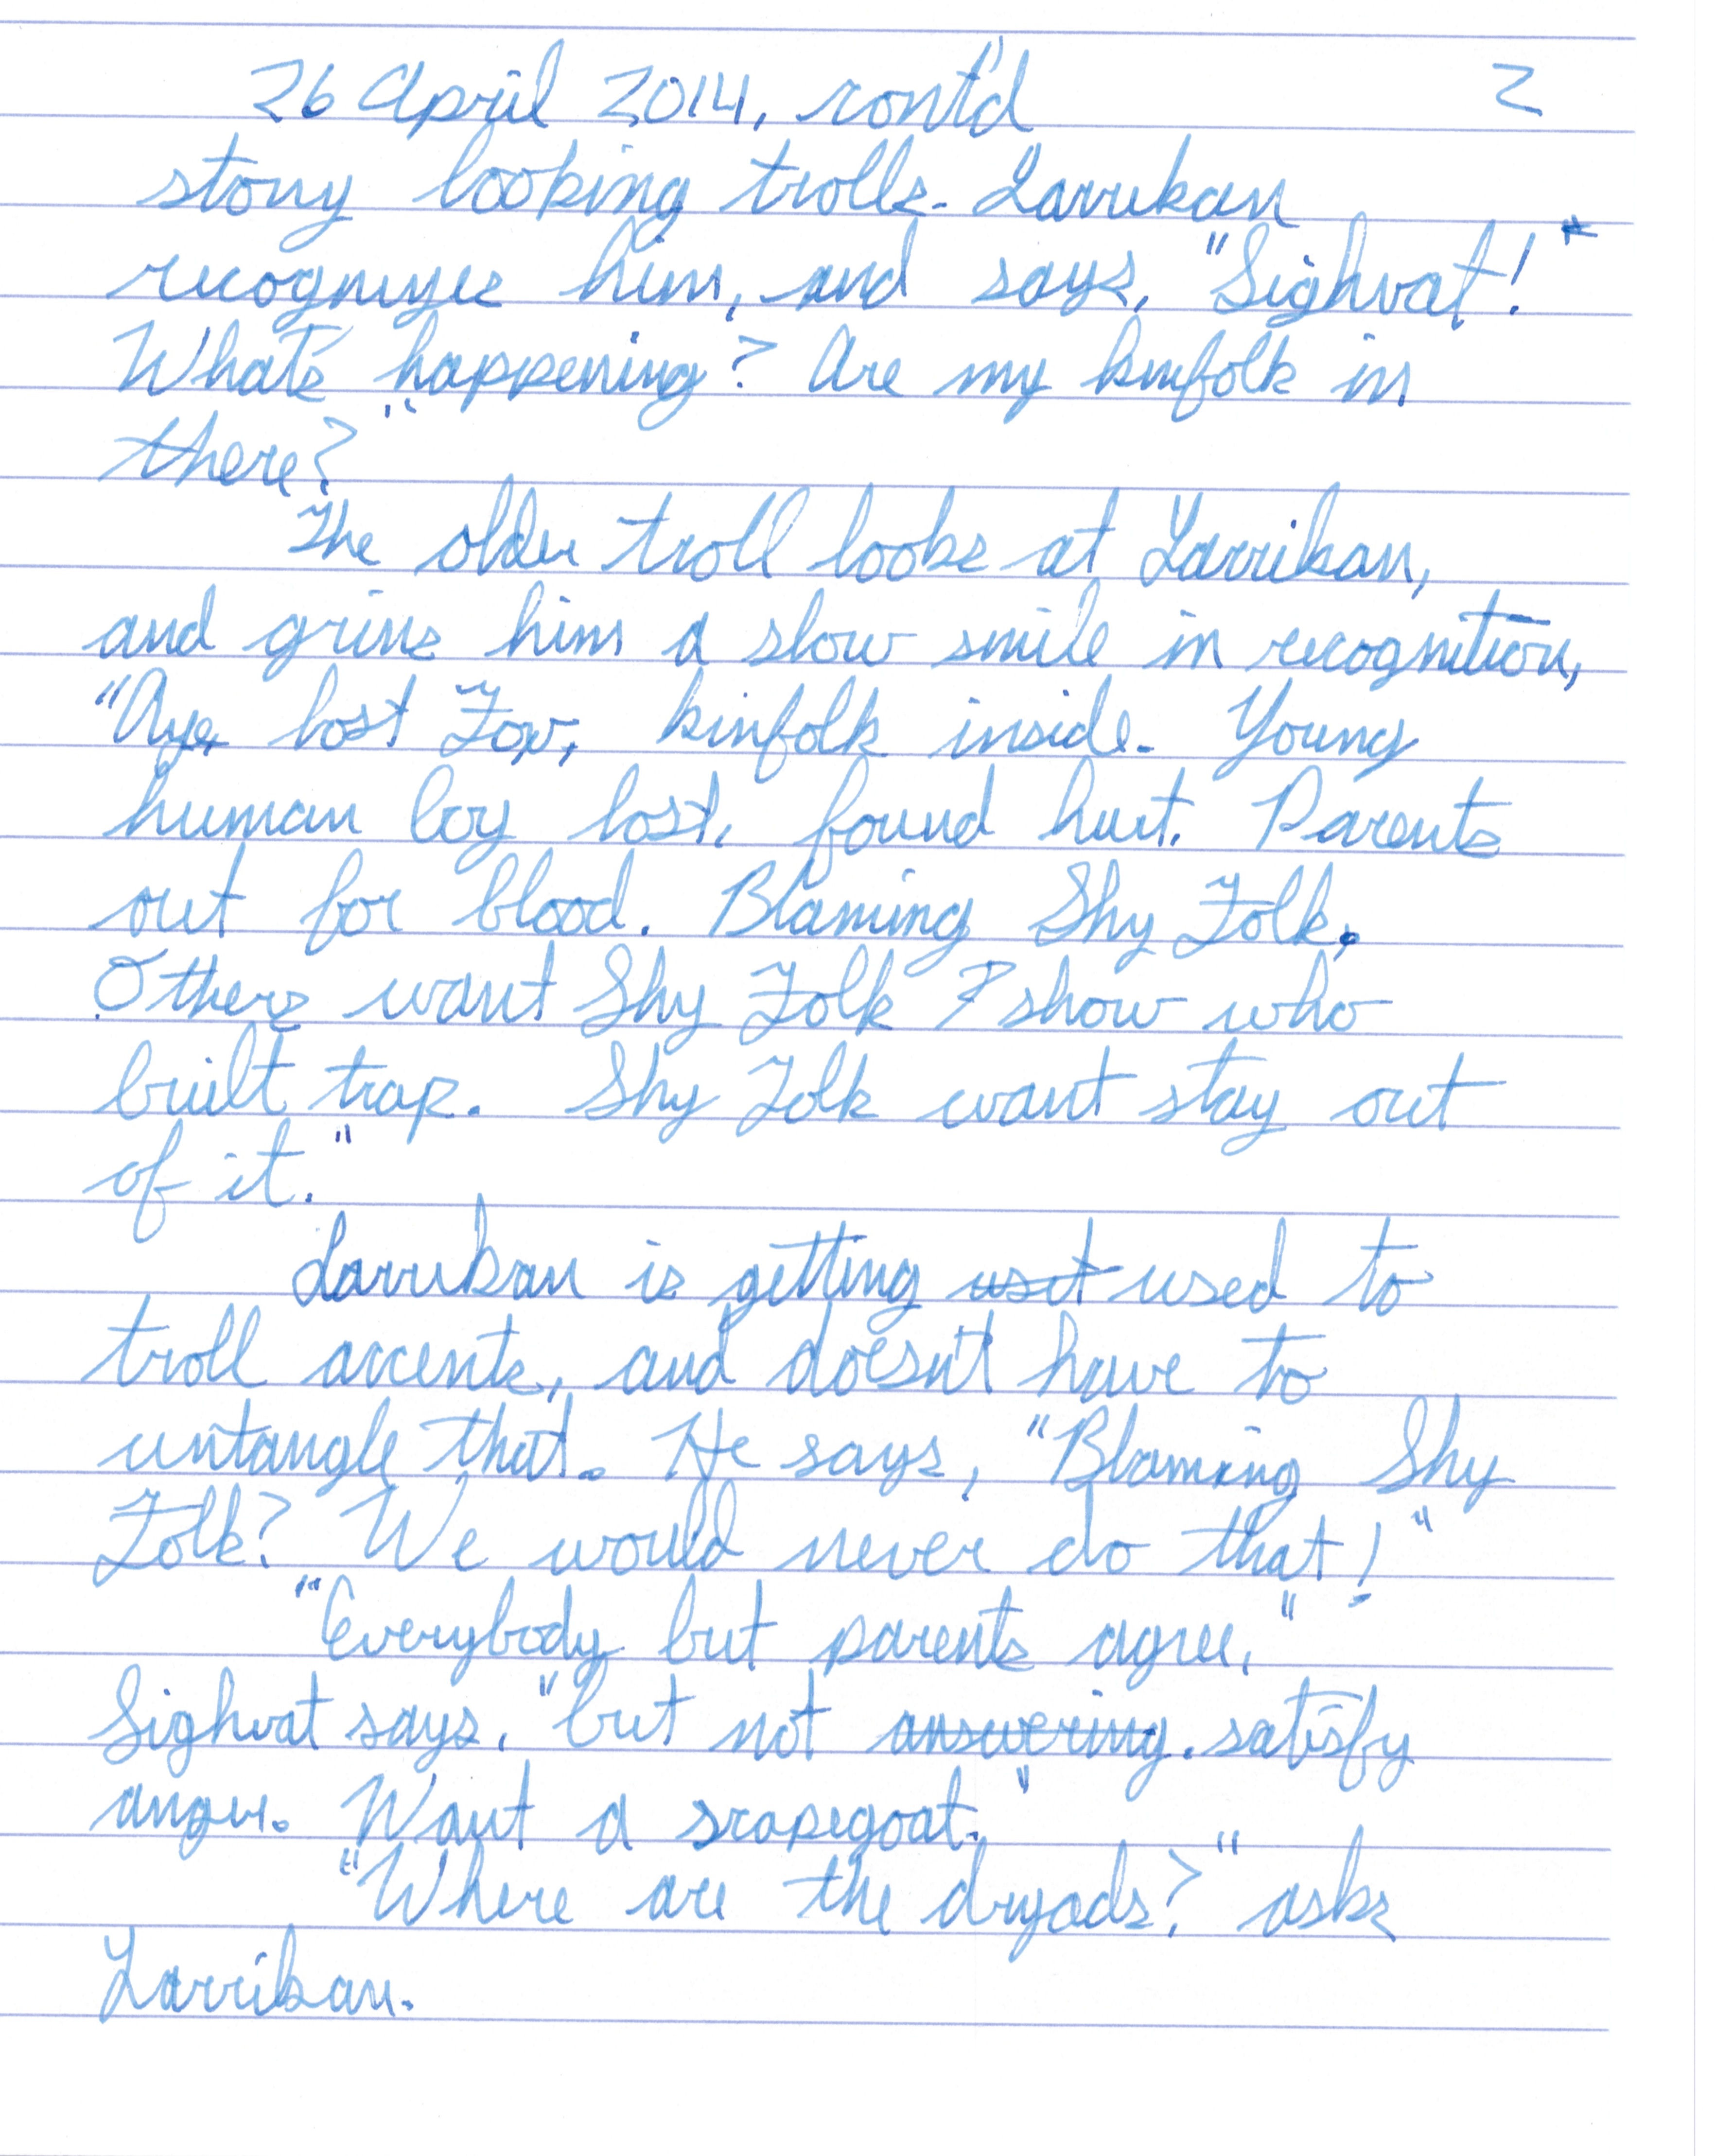 26 April 2014, cont'd 2
stony looking trolls. Larrikan
recognizes him, and says, "Sighvat!*
What's happening? Are my kinfolk in
there?"
The older troll looks at Larrikan,
and grins him a slow smile in recognition,
"Aye, lost Fox, kinfolk inside. Young
human boy lost, found hurt. Parents
out for blood. Blaming Shy Folk.
Others want Shy Folk show who
built trap. Shy Folk want stay out
of it."
Larrikan is getting uset used to
troll accents, and doesn't have to
untangle that. He says, "Blaming Shy
Folk? We would never do that!"
"Everybody but parents agree,"
Sighvat says, "but not answering. satisfy
anger. Want a scapegoat."
"Where are the dryads?" asks
Larrikan.